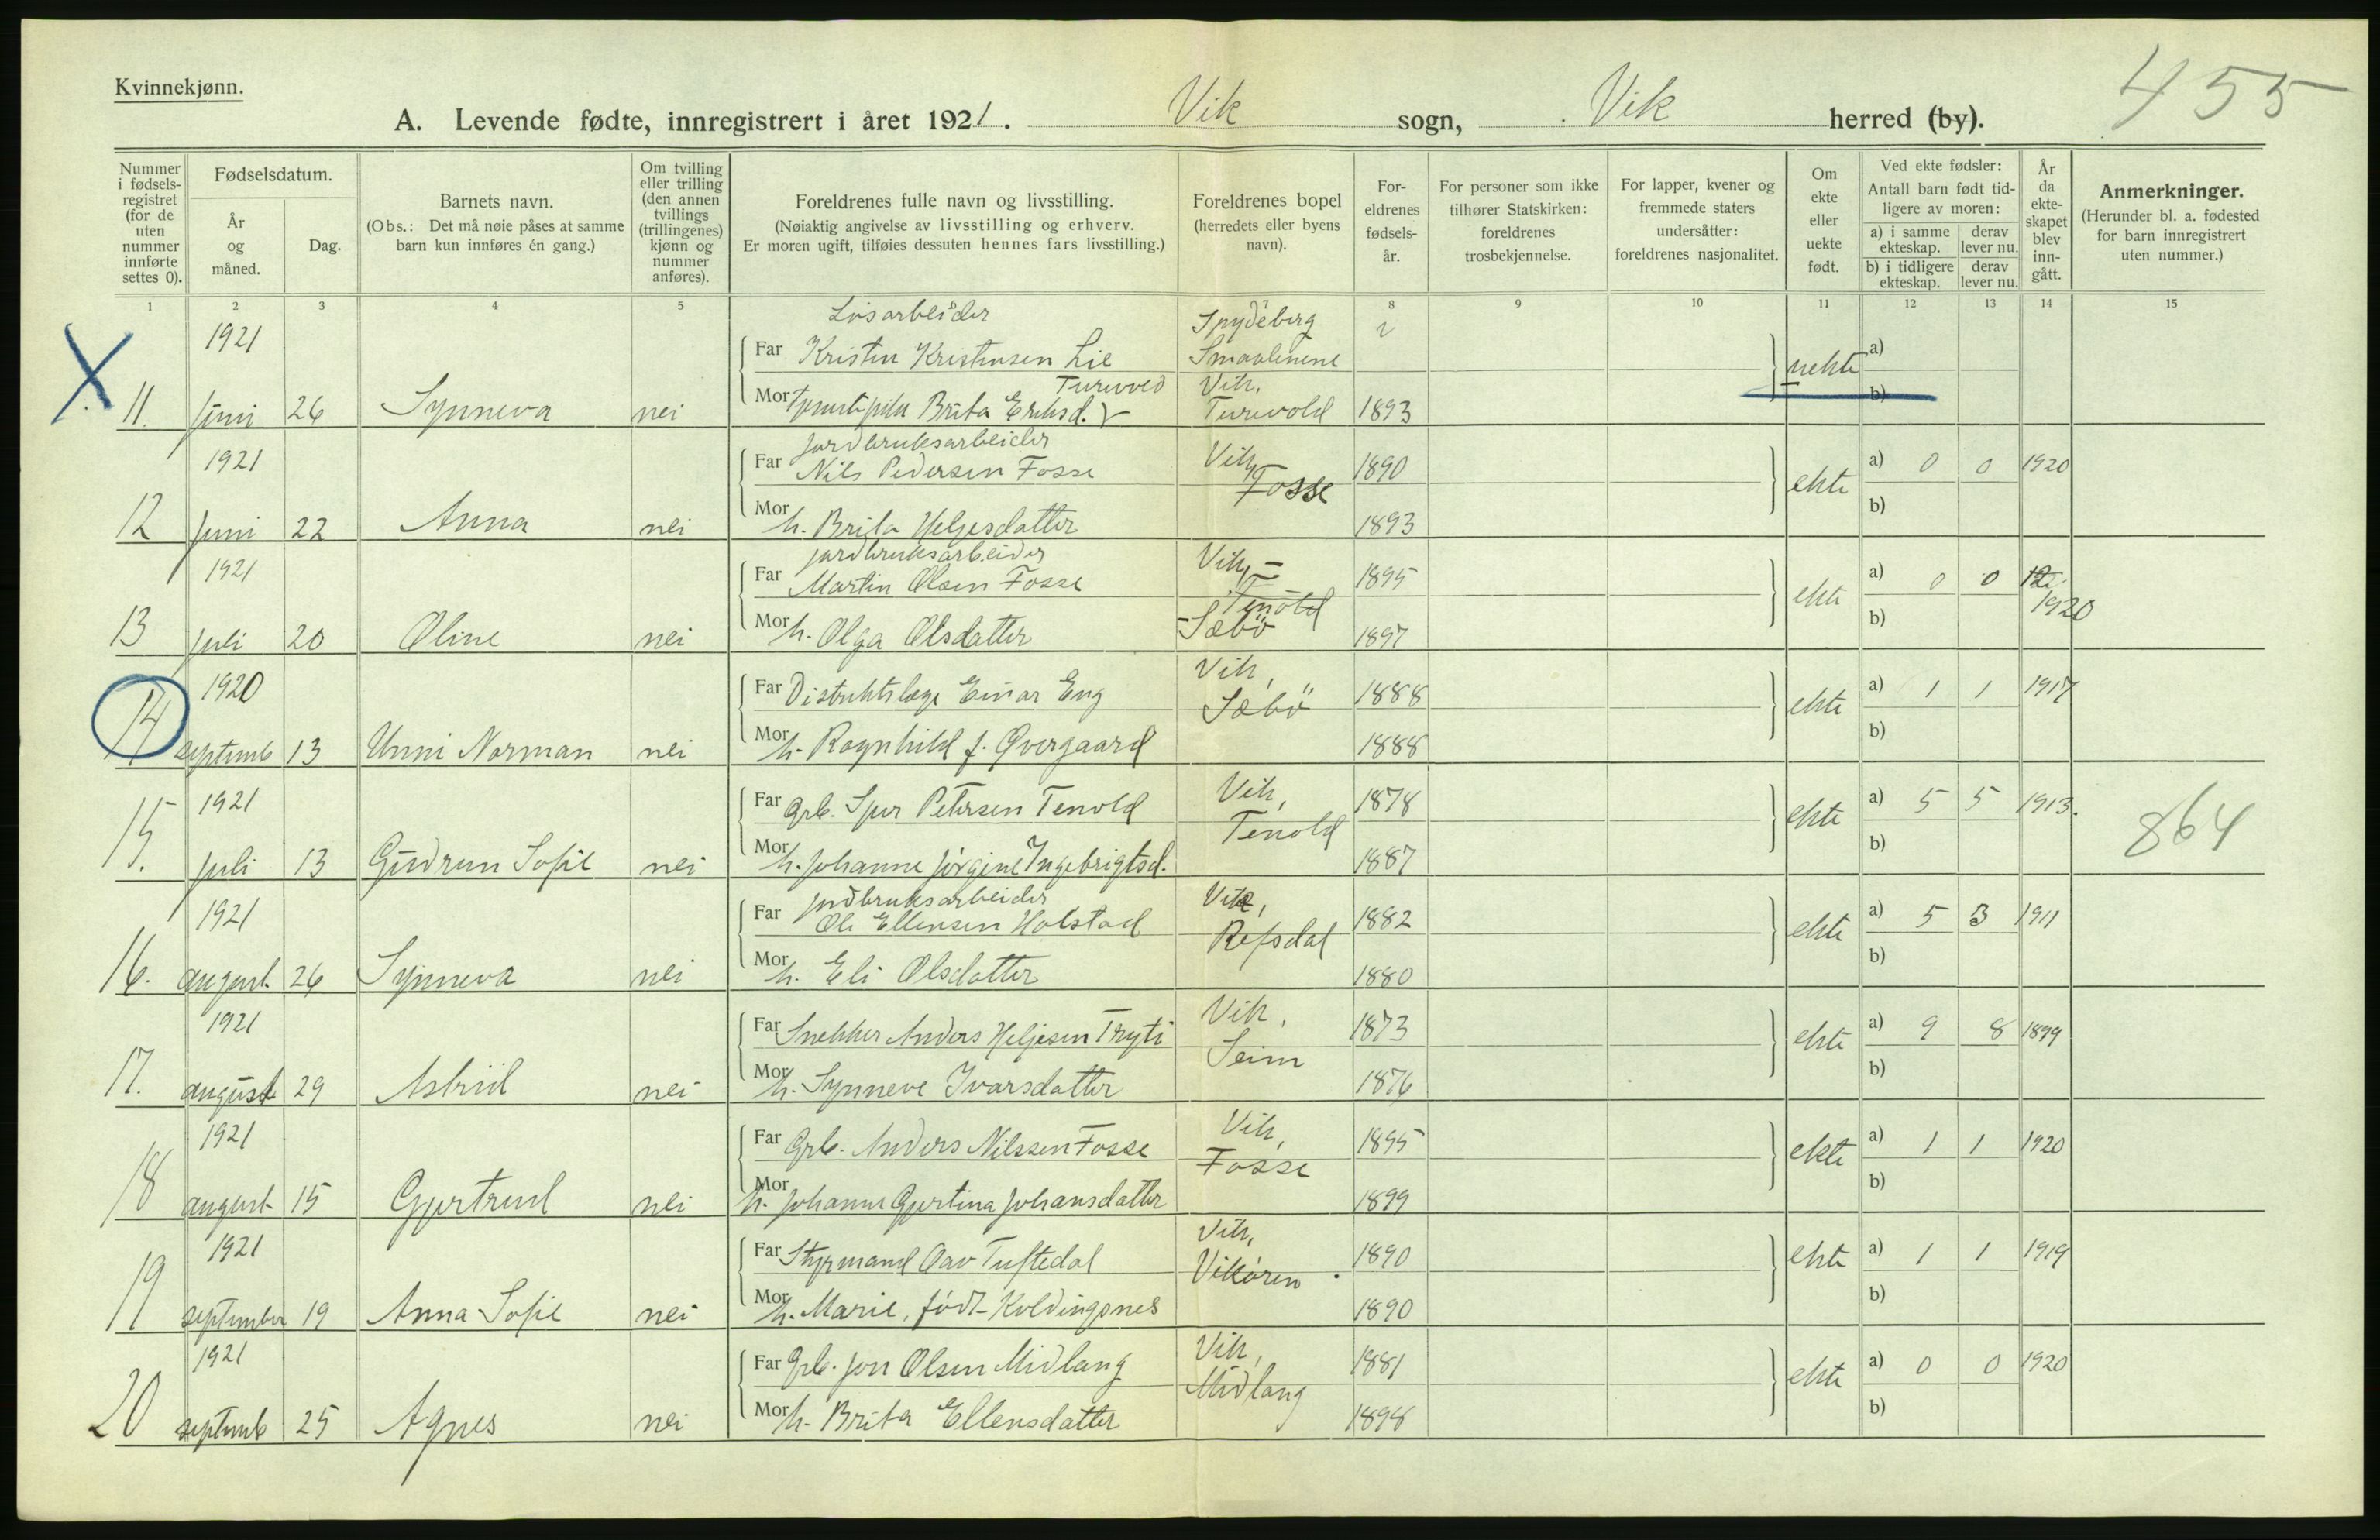 Kvinnekjønn.
455
A. Levende fødte, innregistrert i året 1921. Vik sogn, Vik herred (by).
Nummer i fødsels-registret (for de uten nummer innførte settes 0).
Fødselsdatum.
År og måned.
Dag.
Barnets navn.
(Obs.: Det må nøie påses at samme barn kun innføres én gang.)
Om tvilling eller trilling (den annen tvillings (trillingenes) kjønn og nummer anføres).
Foreldrenes fulle navn og livsstilling.
(Nøiaktig angivelse av livsstilling og erhverv.
Er moren ugift, tilføies dessuten hennes fars livsstilling.)
Foreldrenes bopel (herredets eller byens navn).
For-eldrenes fødsels-år.
For personer som ikke tilhører Statskirken: foreldrenes trosbekjennelse.
For lapper, kvener og fremmede staters undersåtter: foreldrenes nasjonalitet.
Om ekte eller uekte født.
Ved ekte fødsler:
Antall barn født tid-ligere av moren:
a) i samme ekteskap. derav lever nu.
b) i tidligere ekteskap. derav lever nu.
År da ekte-skapet blev inn-gått.
Anmerkninger.
(Herunder bl. a. fødested for barn innregistrert uten nummer.)
1 2 3 4 5 6 7 8 9 10 11 12 13 14 15
Løsarbeider Spydeberg
1921 Far Kristen Kristensen Lie Smaalenene uekte a)
Turvold Vik,
11. juni 26 Synneva nei Mor Brita Eriksd. Turvold 1893 b)
jordbruksarbeider
1921 Far Nils Pedersen Fosse Vik, Fosse 1890 ekte a) 0 0 1920
12 juni 22 Anna nei Mor h. Brita Helgesdatter 1893 b)
jordbruksarbeider
1921 Far Martin Olsen Fosse Vik, Tenold 1895 ekte a) 0 0 1920
13 juli 20 Oline nei Mor h. Olga Olsdatter Sæbö 1897 b)
1920 Far Distriktslæge Einar Eng Vik, Sæbö 1888 ekte a) 1 1 1917
14 septemb 13 Unni Norman nei Mor h. Ragnhild f. Overgaard 1888 b)
1921 Far Grb. Sjur Petersen Tenold Vik, Tenold 1878 ekte a) 5 5 1913. 864
15. juli 13 Gudrun Sofie nei Mor h. Johanne Jörgine Ingebrigtsd. 1887 b)
jordbruksarbeider
1921 Far Ole Ellensen Holstad Vik, Refsdal 1882 ekte a) 5 3 1911
16. august 26 Synneva nei Mor h. Eli Olsdatter 1880 b)
1921 Far Snekker Anders Helgesen Tryti Vik, Seim 1873 ekte a) 9 8 1899
17. august 29 Astrid nei Mor h. Synneve Ivarsdatter 1876 b)
1921 Far Grb. Anders Nilssen Fosse Vik, Fosse 1895 ekte a) 1 1 1920
18 august 15 Gjertrud nei Mor h. Johanne Gjertina Johansdatter 1899 b)
1921 Far Styrmand Oav Tuftedal Vik, Vikören 1890 ekte a) 1 1 1919
19 september 19 Anna Sofie nei Mor h. Marie, född Koldingsnes 1890 b)
1921 Far Grb. Jon Olsen Midlang Vik, Midlang 1881 ekte a) 0 0 1920
20 septemb 25 Agnes nei Mor h. Brita Ellensdatter 1898 b)